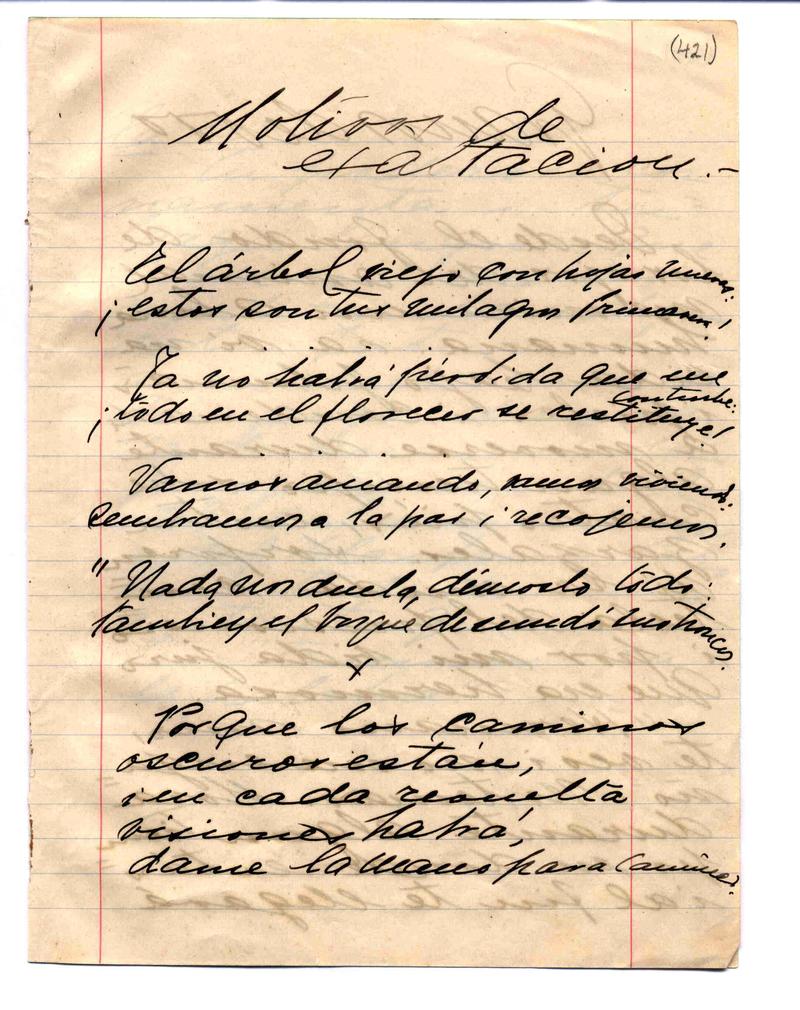 (421)
Motivos de
exaltacion.-
El árbol viejo con hojas nuevas:
¡estos son tus milagros Primavera!
Ya no habrá pérdida que me
conturbe:
¡todo en el florecer se restituye!
Vamos amando, vamos viviendo:
sembramos a la par i recojemos.
"Nada nos duela, démoslo todo:
tambien el bosque desnudó sus troncos.
x
Porque los caminos
oscuros están,
i en cada revuelta
visiones habrá,
dame la mano para caminar.